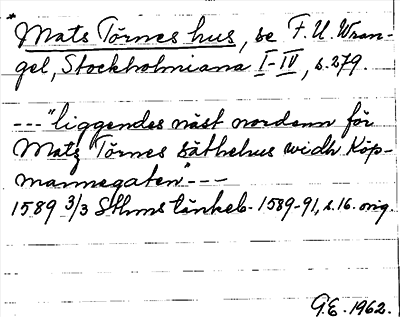 *Mats Törnes hus, se F.U. Wran-
gel, Stockholmiana I-IV, s.279.
---"liggendes näst nordenn för
Matz Törnes säthehus widh Köp-
mannegaten"---
1589 3/3 Sthms tänkeb. 1589-91, s.16. orig.
G.E. 1962.